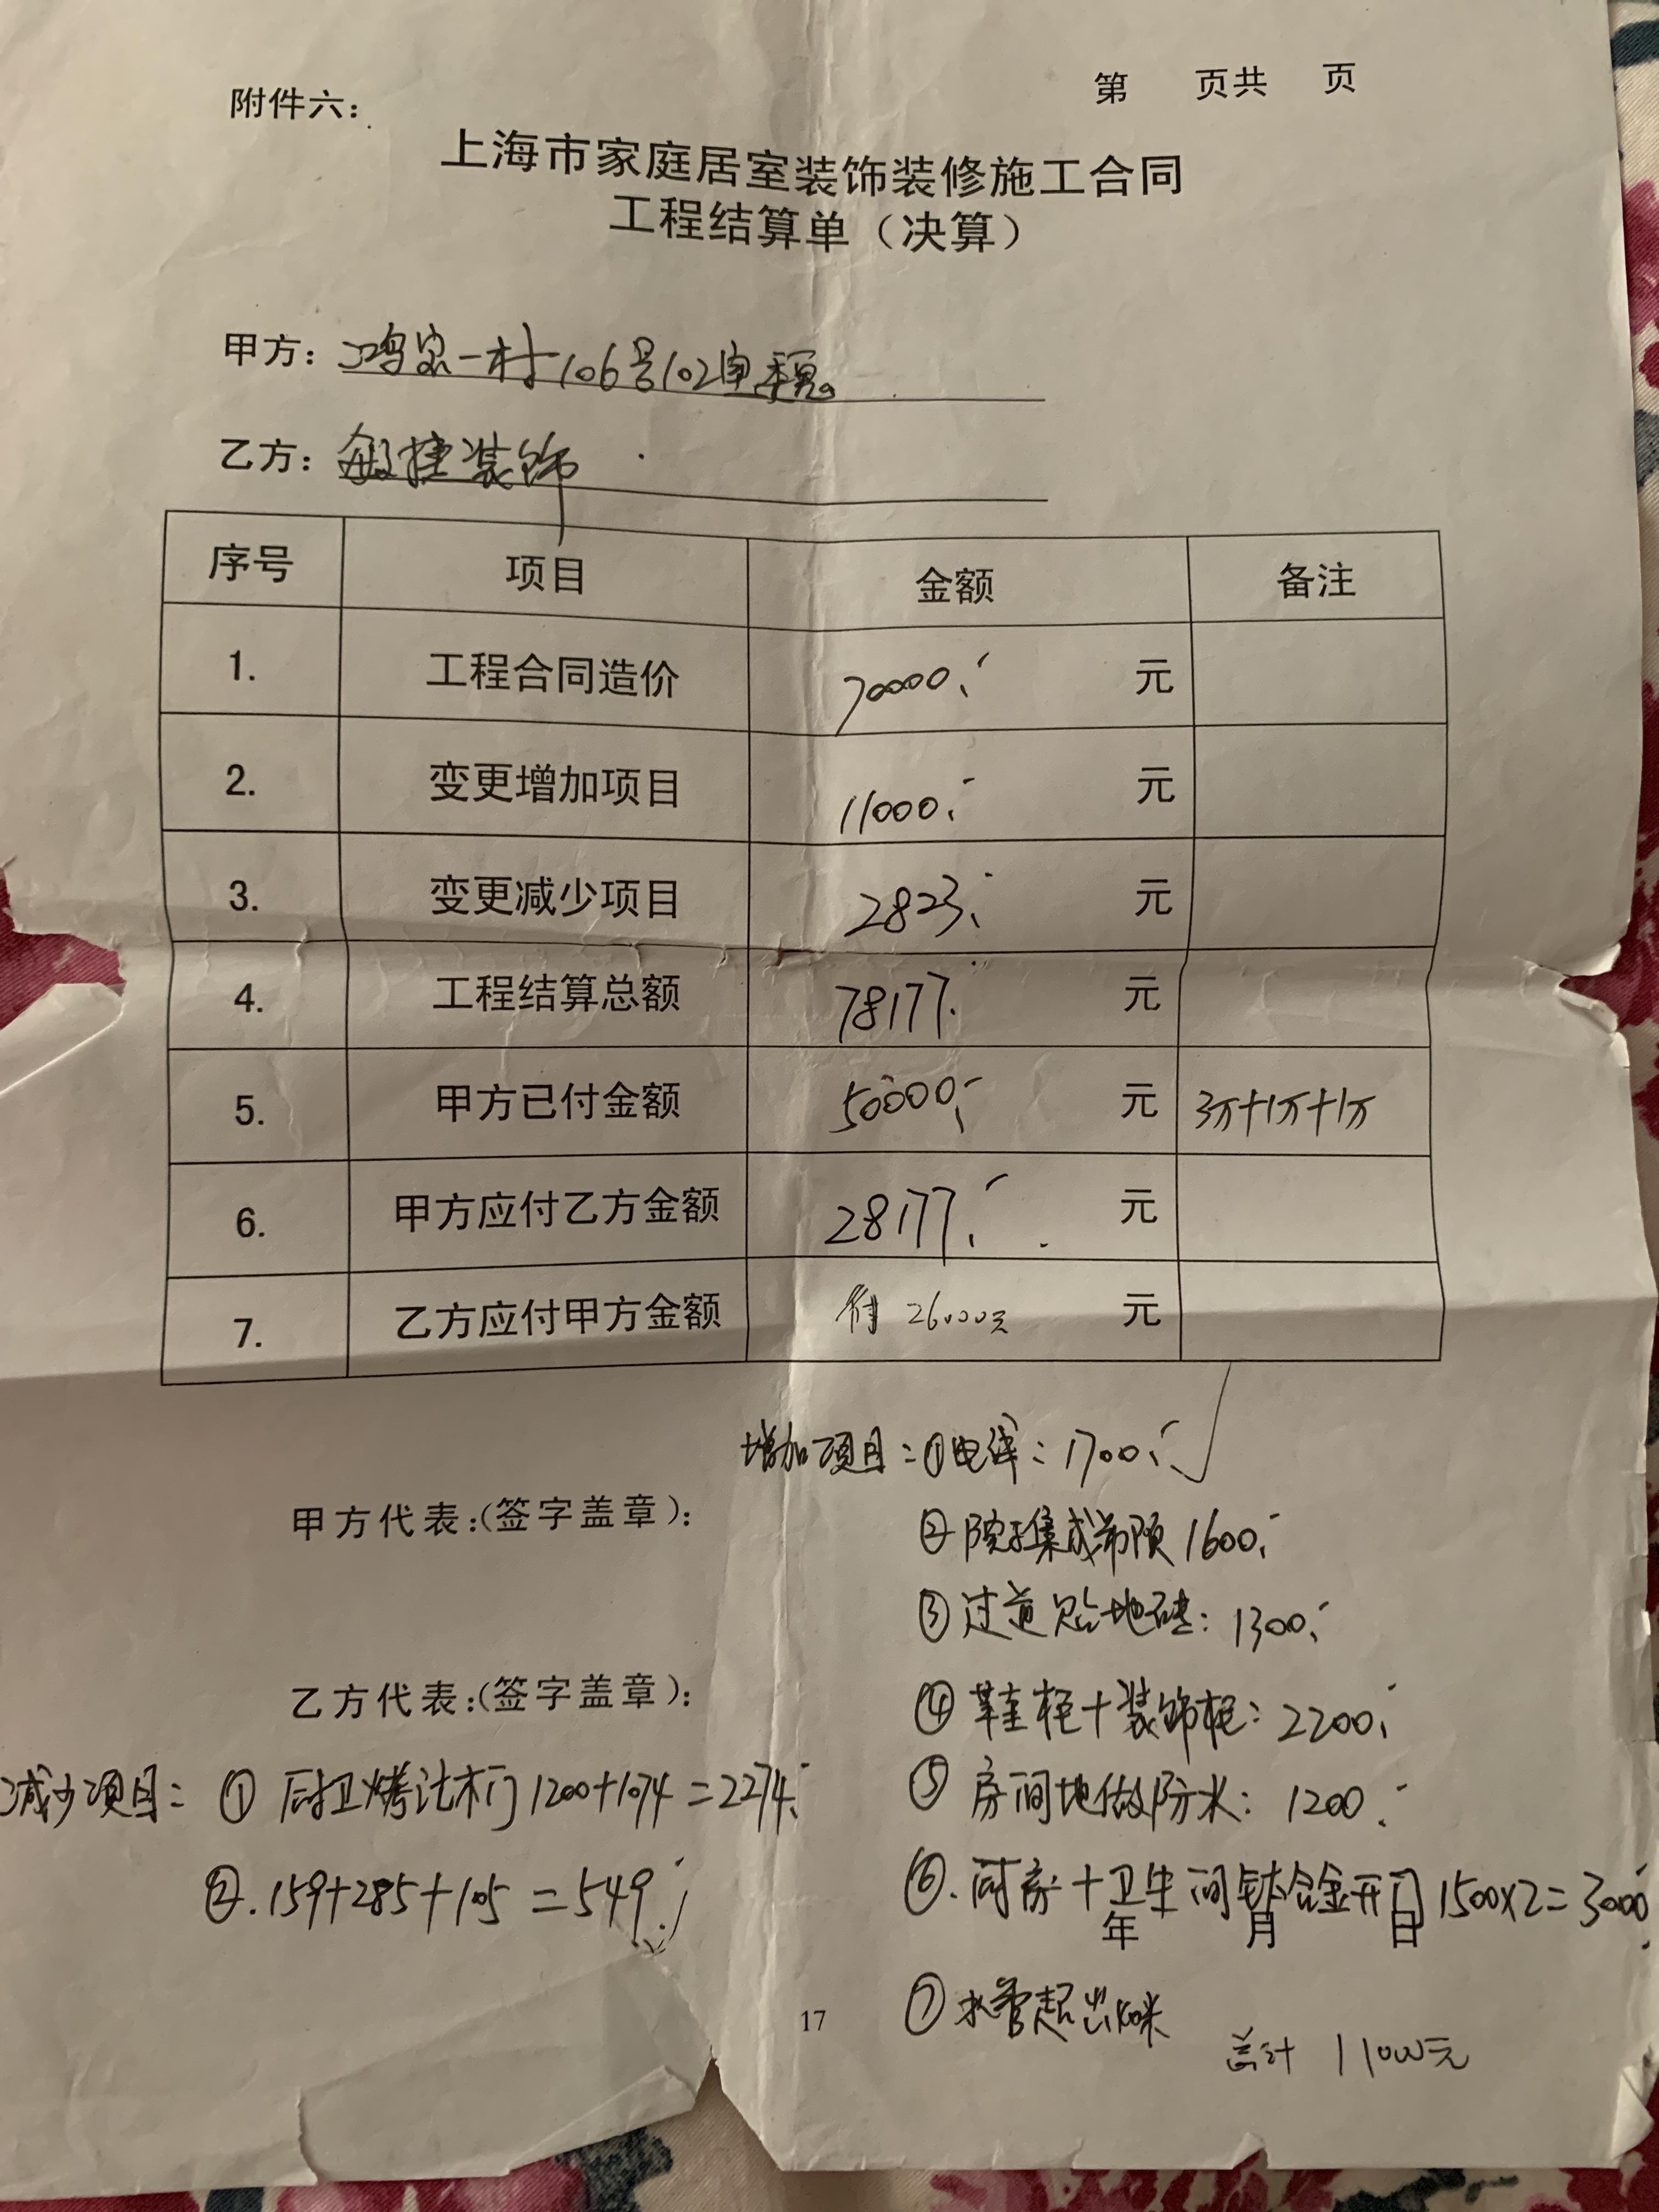 附件六：
第 页共 页
上海市家庭居室装饰装修施工合同
工程结算单（决算）
甲方：鸿宗一村106号102
乙方：敏捷装饰
序号 项目 金额 备注
1. 工程合同造价 70000.- 元
2. 变更增加项目 11000.- 元
3. 变更减少项目 2823.- 元
4. 工程结算总额 78177.- 元
5. 甲方已付金额 50000.- 元 3万+1万+1万
6. 甲方应付乙方金额 28177.- 元
7. 乙方应付甲方金额 付 26000元 元
增加项目：①电线：1700.-
甲方代表：(签字盖章)：
②院子集成吊顶 1600.-
③过道贴地砖：1300.-
乙方代表：(签字盖章)：
④鞋柜+装饰柜：2200.-
减少项目：① 厨卫烤漆木门 1200+1074=2274.-
⑤房间地做防水：1200.-
②.159+285+105=549.-
⑥.厨房+卫生间钛合金开门 1500×2=3000.-
年 月 日
⑦水管超出 米
17
总计 11000元